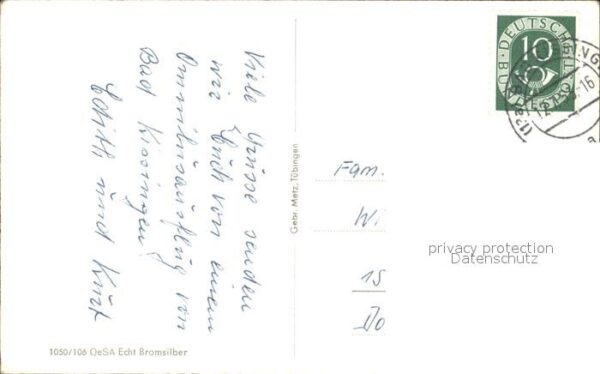 Viele Grüsse senden
wir Euch von einem
Omnibusausflug von
Bad Kissingen!
Edith und Kurt
Gebr. Metz, Tübingen
1050/106 QeSA Echt Bromsilber
DEUTSCHE BUNDESPOST
10
Fam.
Wi
15
Do
privacy protection
Datenschutz